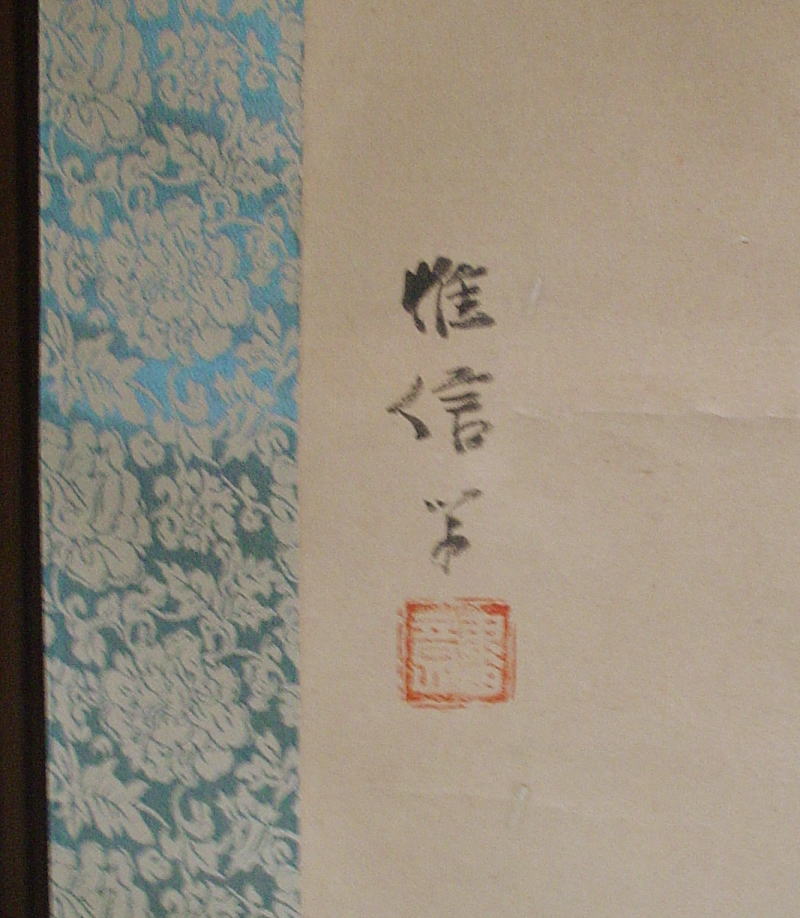 惟信筆